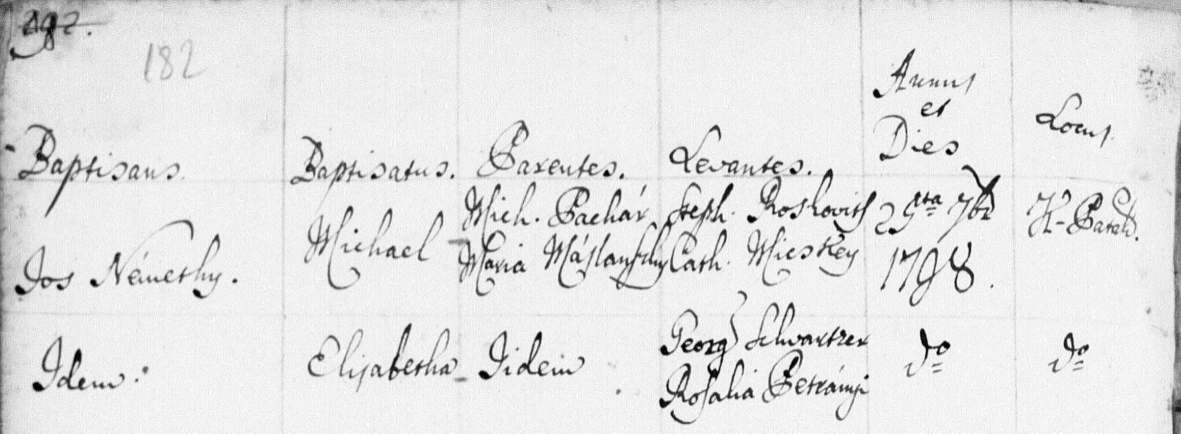 182
Baptisans. Baptisatus. Parentes. Levantes. Annus et Dies Locus.
Jos Némethy. Michael Mich. Pachár Steph. Roskovits 29ta 7br K-Patak.
Maria Máslanszky Cath. Mieskey 1798.
Idem. Elisabetha Iidem Georg Schwartzer do do
Rosalia Petrányi